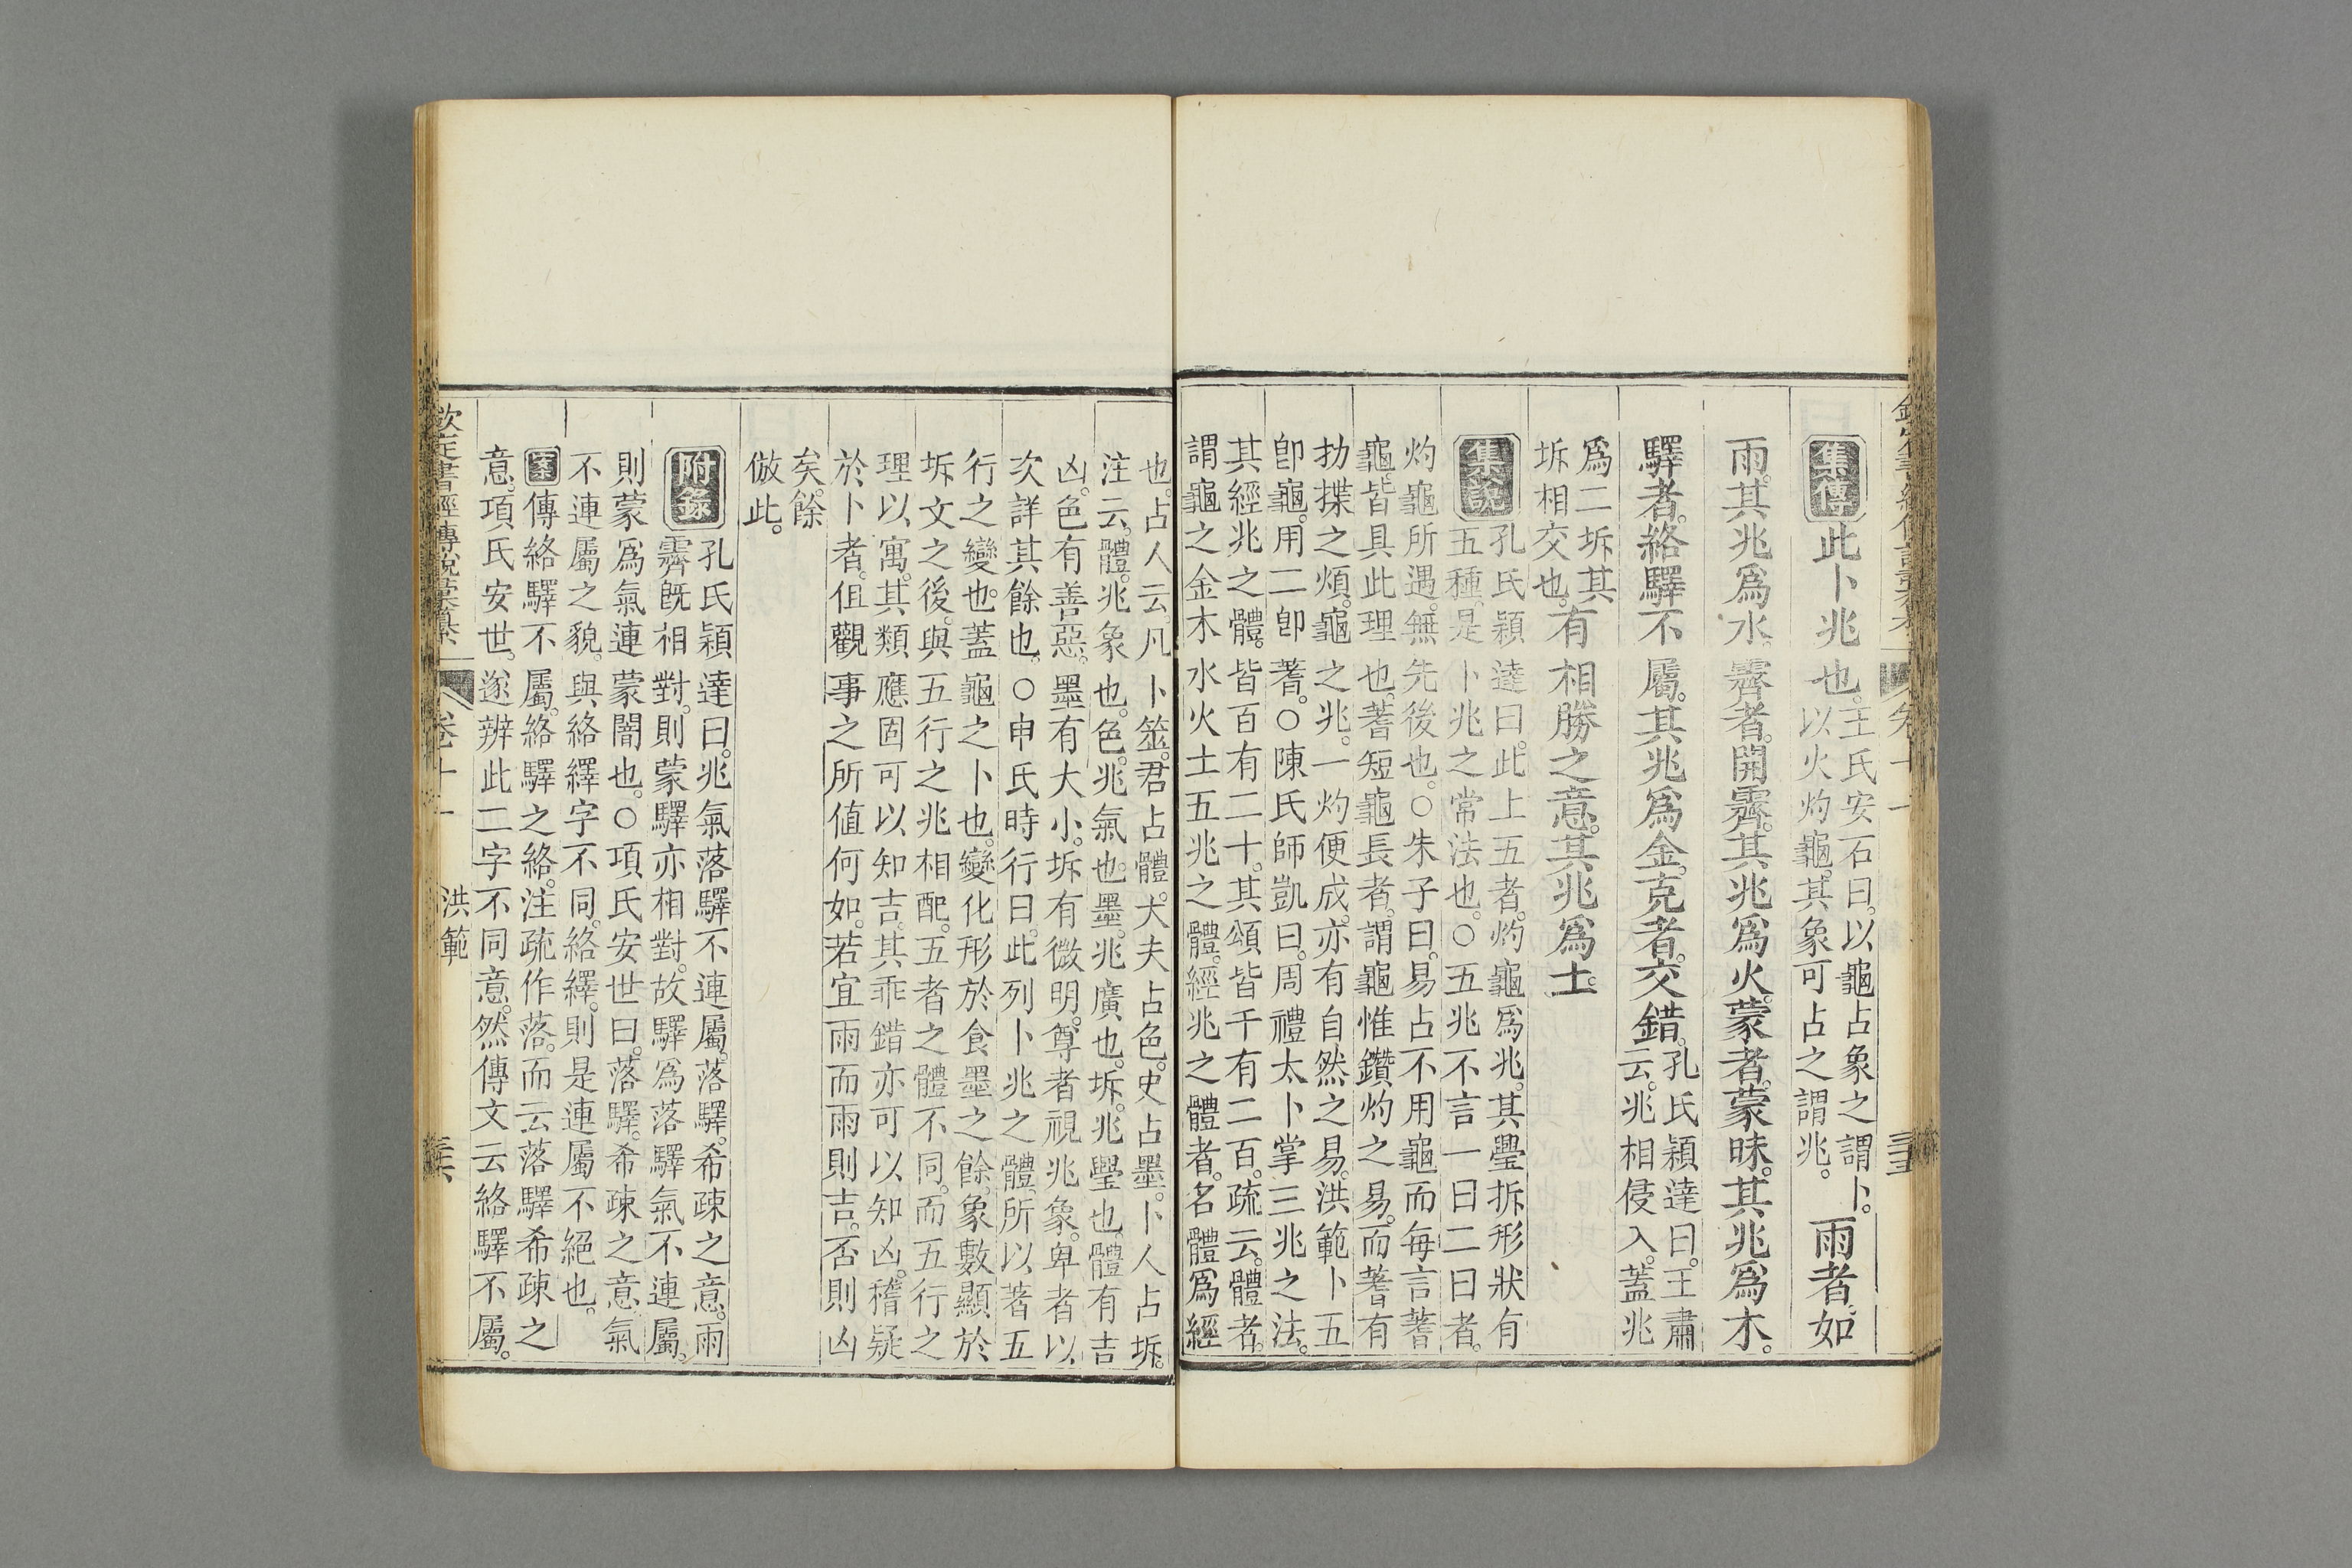 集傳
此卜兆也。
王氏安石曰。以龜占象之謂卜。
以火灼龜。其象可占之謂兆。
雨者。如
雨。其兆爲水。霽者。開霽。其兆爲火。蒙者。蒙昧。其兆爲木。
驛者。絡驛不屬。其兆爲金。克者。交錯。
孔氏穎達曰。王肅
云。兆相侵入。蓋兆
爲二坼其
坼相交也。
有相勝之意。其兆爲土。
集說
孔氏穎達曰。此上五者。灼龜爲兆。其璺拆形狀有
五種。是卜兆之常法也。○五兆不言一曰二曰者。
灼龜所遇。無先後也。○朱子曰。易占不用龜而每言蓍
龜。皆具此理也。蓍短龜長者。謂龜惟鑽灼之易。而蓍有
扐揲之煩。龜之兆。一灼便成。亦有自然之易。洪範卜五
卽龜。用二卽蓍。○陳氏師凱曰。周禮太卜掌三兆之法。
其經兆之體。皆百有二十。其頌皆千有二百。疏云。體者。
謂龜之金木水火土五兆之體。經兆之體者。名體爲經
也。占人云。凡卜筮。君占體。大夫占色。史占墨。卜人占坼。
注云。體。兆象也。色。兆氣也。墨。兆廣也。坼。兆璺也。體有吉
凶。色有善惡。墨有大小。坼有微明。尊者視兆象。卑者以
次詳其餘也。○申氏時行曰。此列卜兆之體。所以著五
行之變也。蓋龜之卜也。變化形於食墨之餘。象數顯於
坼文之後。與五行之兆相配。五者之體不同。而五行之
理以寓。其類應固可以知吉。其乖錯亦可以知凶。稽疑
於卜者。但觀事之所値何如。若宜雨而雨則吉。否則凶
矣。餘
倣此。
附錄
孔氏穎達曰。兆氣落驛不連屬。落驛。希疎之意。雨
霽旣相對。則蒙驛亦相對。故驛爲落驛氣不連屬。
則蒙爲氣連蒙闇也。○項氏安世曰。落驛。希疎之意。氣
不連屬之貌。與絡繹字不同。絡繹。則是連屬不絕也。
案
傳絡驛不屬。絡驛之絡。注疏作落。而云落驛希疎之
意。項氏安世。遂辨此二字不同意。然傳文云絡驛不屬。
欽定書經傳說彙纂
卷十一
洪範
三六